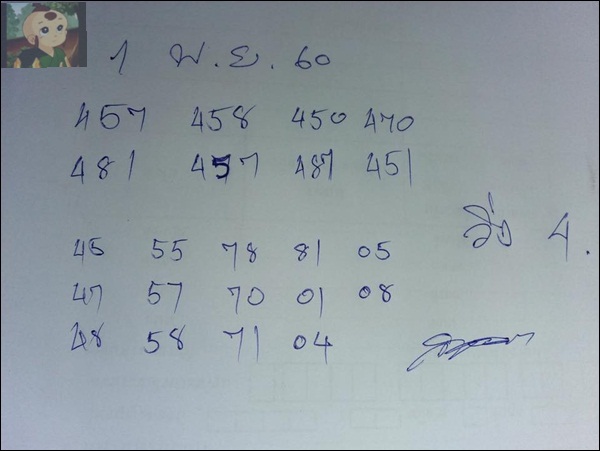 1 พ.ย. 60
457 458 450 470
481 457 487 451
วิ่ง 4.
45 55 78 81 05
47 57 70 01 08
48 58 71 04